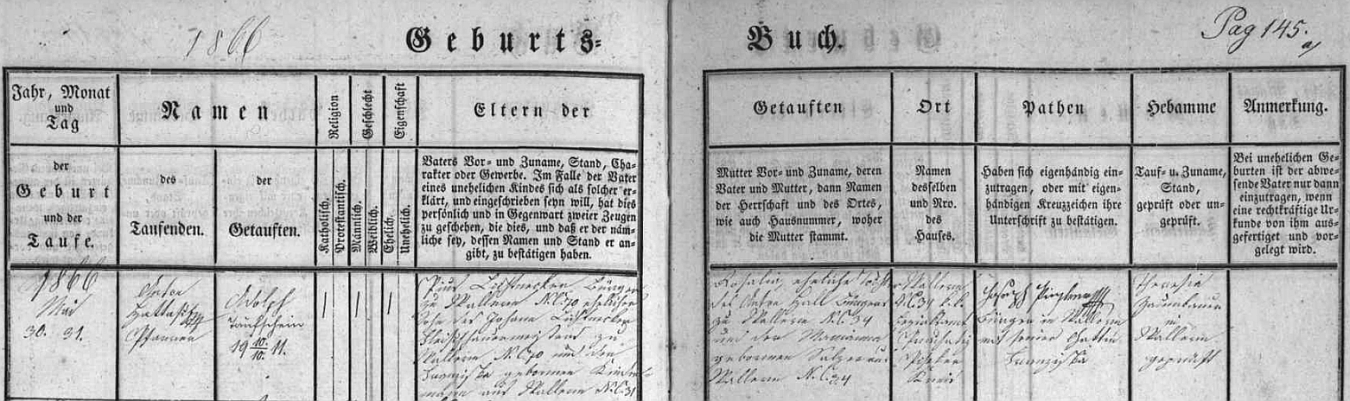 1866
Geburts-
Buch.
Pag 145.
a/
Jahr, Monat
und
Tag
Namen
Religion
Geschlecht
Eigenschaft
Eltern der
Getauften
Ort
Pathen
Hebamme
Anmerkung.
der
Geburt
und der
Taufe.
des
Taufenden.
der
Getauften.
Katholisch.
Protestantisch.
Männlich.
Weiblich.
Ehelich.
Unehelich.
Vaters Vor- und Zuname, Stand, Cha-
rakter oder Gewerbe. Im Falle der Vater
eines unehelichen Kindes sich als solcher er-
klärt, und eingeschrieben seyn will, hat dies
persönlich und in Gegenwart zweier Zeugen
zu geschehen, die dies, und daß er der näm-
liche sey, dessen Namen und Stand er an-
gibt, zu bestätigen haben.
Mutter Vor- und Zuname, deren
Vater und Mutter, dann Namen
der Herrschaft und des Ortes,
wie auch Hausnummer, woher
die Mutter stammt.
Namen
desselben
und Nro.
des
Hauses.
Haben sich eigenhändig ein-
zutragen, oder mit eigen-
händigen Kreuzzeichen ihre
Unterschrift zu bestätigen.
Tauf- u. Zuname,
Stand,
geprüft oder un-
geprüft.
Bei unehelichen Ge-
burten ist der abwe-
sende Vater nur dann
einzutragen, wenn
eine rechtkräftige Ur-
kunde von ihm aus-
gefertigt und vor-
gelegt wird.
1866
Mai
30. 31.
Peter
Pfarrer
Adolph
Taufschein
19 10/10. 11.
Pius Bürger
zu Wallern N.C. 70 ehelicher
Sohn des Johann
Fleischhauermeisters zu
Wallern N.C. 70 und der
Franziska gebornen
aus Wallern N.C. 31
Rosalia, eheliche Tochter
des Bürgers
zu Wallern N.C. 34
und der Marianna
gebornen Salzer aus
Wallern N.C. 34
Wallern
N.C. 34 k.k.
Bezirksamt
Prachatitz
Piseker
Kreis
Joseph
Bürger in Wallern
mit seiner Gattin
Franziska
Theresia
in
Wallern
geprüft